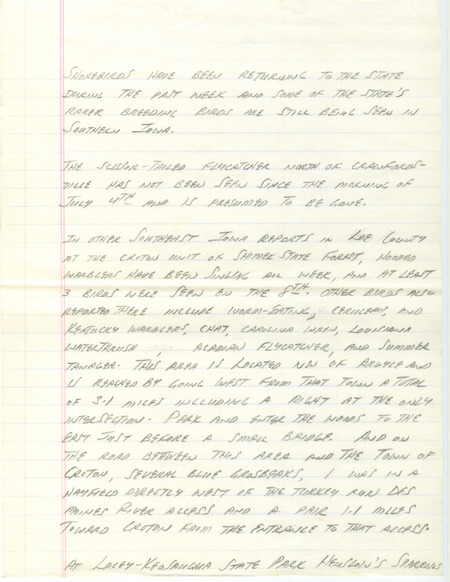 SHOREBIRDS HAVE BEEN RETURNING TO THE STATE
DURING THE PAST WEEK AND SOME OF THE STATE'S
RARER BREEDING BIRDS ARE STILL BEING SEEN IN
SOUTHERN IOWA.
THE SCISSOR-TAILED FLYCATCHER NORTH OF CRAWFORDS-
VILLE HAS NOT BEEN SEEN SINCE THE MORNING OF
JULY 4TH AND IS PRESUMED TO BE GONE.
IN OTHER SOUTHEAST IOWA REPORTS IN LEE COUNTY
AT THE CROTON UNIT OF SHIMEK STATE FOREST, HOODED
WARBLERS HAVE BEEN SINGING ALL WEEK, AND AT LEAST
3 BIRDS WERE SEEN ON THE 8TH. OTHER BIRDS ALSO
REPORTED THERE INCLUDE WORM-EATING, CERULEAN, AND
KENTUCKY WARBLERS, CHAT, CAROLINA WREN, LOUISIANA
WATERTHRUSH, ACADIAN FLYCATCHER, AND SUMMER
TANAGER. THIS AREA IS LOCATED NW OF ARGYLE AND
IS REACHED BY GOING WEST FROM THAT TOWN A TOTAL
OF 3.1 MILES INCLUDING A RIGHT AT THE ONLY
INTERSECTION. PARK AND ENTER THE WOODS TO THE
EAST JUST BEFORE A SMALL BRIDGE. AND ON
THE ROAD BETWEEN THIS AREA AND THE TOWN OF
CROTON, SEVERAL BLUE GROSBEAKS, 1 WAS IN A
HAYFIELD DIRECTLY WEST OF THE TURKEY RUN DES
MOINES RIVER ACCESS AND A PAIR 1.1 MILES
TOWARD CROTON FROM THE ENTRANCE TO THAT ACCESS.
AT LACEY-KEOSAUQUA STATE PARK HENSLOW'S SPARROWS